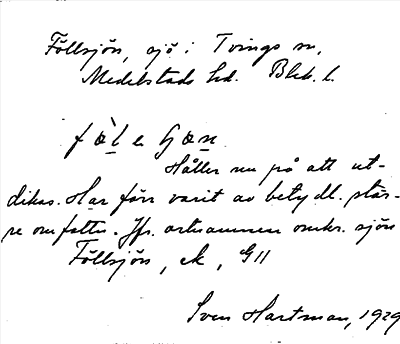 Föllsjön, sjö i Tvings sn,
Medelstads hd. Blek. l.
fø̀lehøn
Håller nu på att ut-
dikas. Har förr varit av betydl. stör-
re omfattn. Jfr. ortnamnen omkr. sjön
Föllsjön, ek, G11
Sven Hartman, 1929